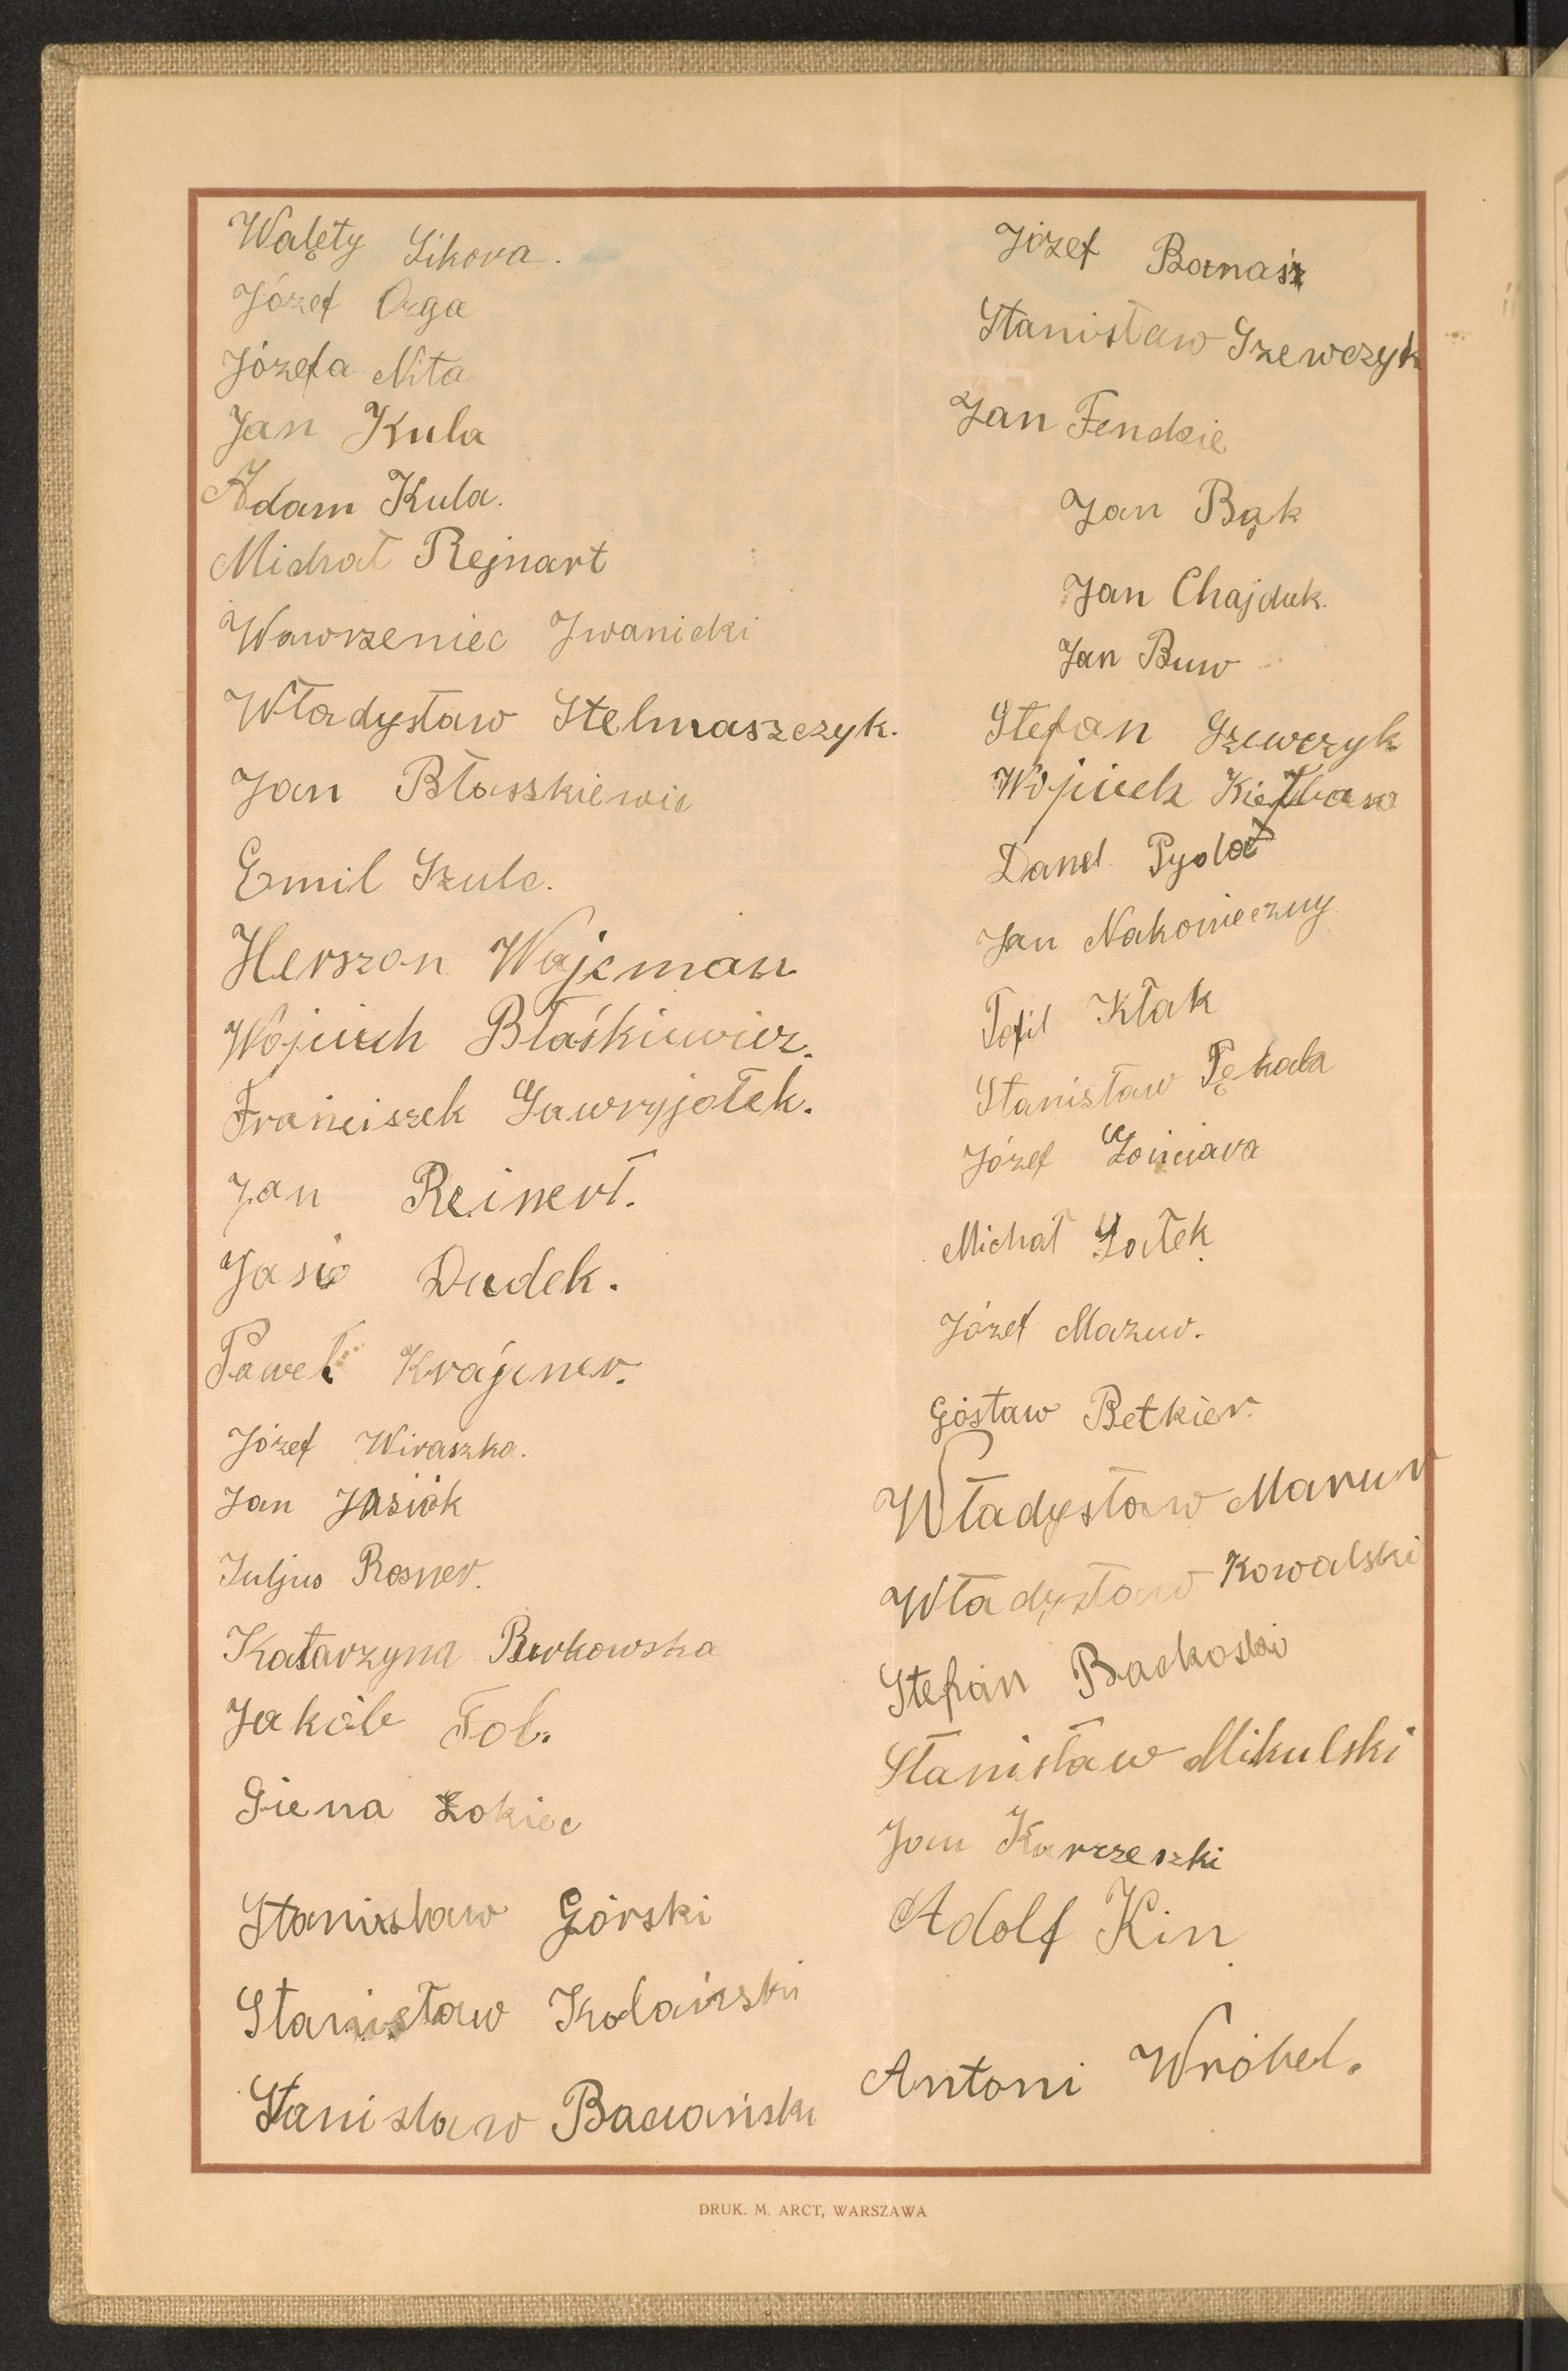 Walęty Sikora.
Józef Orga
Józefa Nita
Jan Kula
Adam Kula.
Michał Rejnart
Wawrzeniec Iwanicki
Władysław Stelmaszczyk.
Jan Błasskiewic
Emil Szulc.
Herszon Wajcman
Wojciech Błaśkiewicz.
Franciszek Gawryjołek.
Jan Reinert.
Jasio Dudek.
Paweł Krajcner.
Józef Wiraszka.
Jan Jasiok
Juljus Rosner.
Katarzyna Burkowska
Jakób Fol.
Giena Łokiec
Stanisław Górski
Stanisław Kolański
Stanisław
Józef Banaś
Stanistaw Szewczyk
Jan Fendzie
Jan Bąk
Jan Chajduk.
Jan Buw
Stefan Szewczyk
Wojciech Kiełbasa
Daniel
Jan Nakonieczny
Tofil Kłak
Stanisław Pękala
Józef
Michał
Józef Mazur.
Gostaw Betkier.
Władysław Marur
Władysław Kowalski
Stefan Backoski
Stanisław Mikulski
Jan Karzeszki
Adolf Kin
Antoni Wróbel.
DRUK. M. ARCT, WARSZAWA